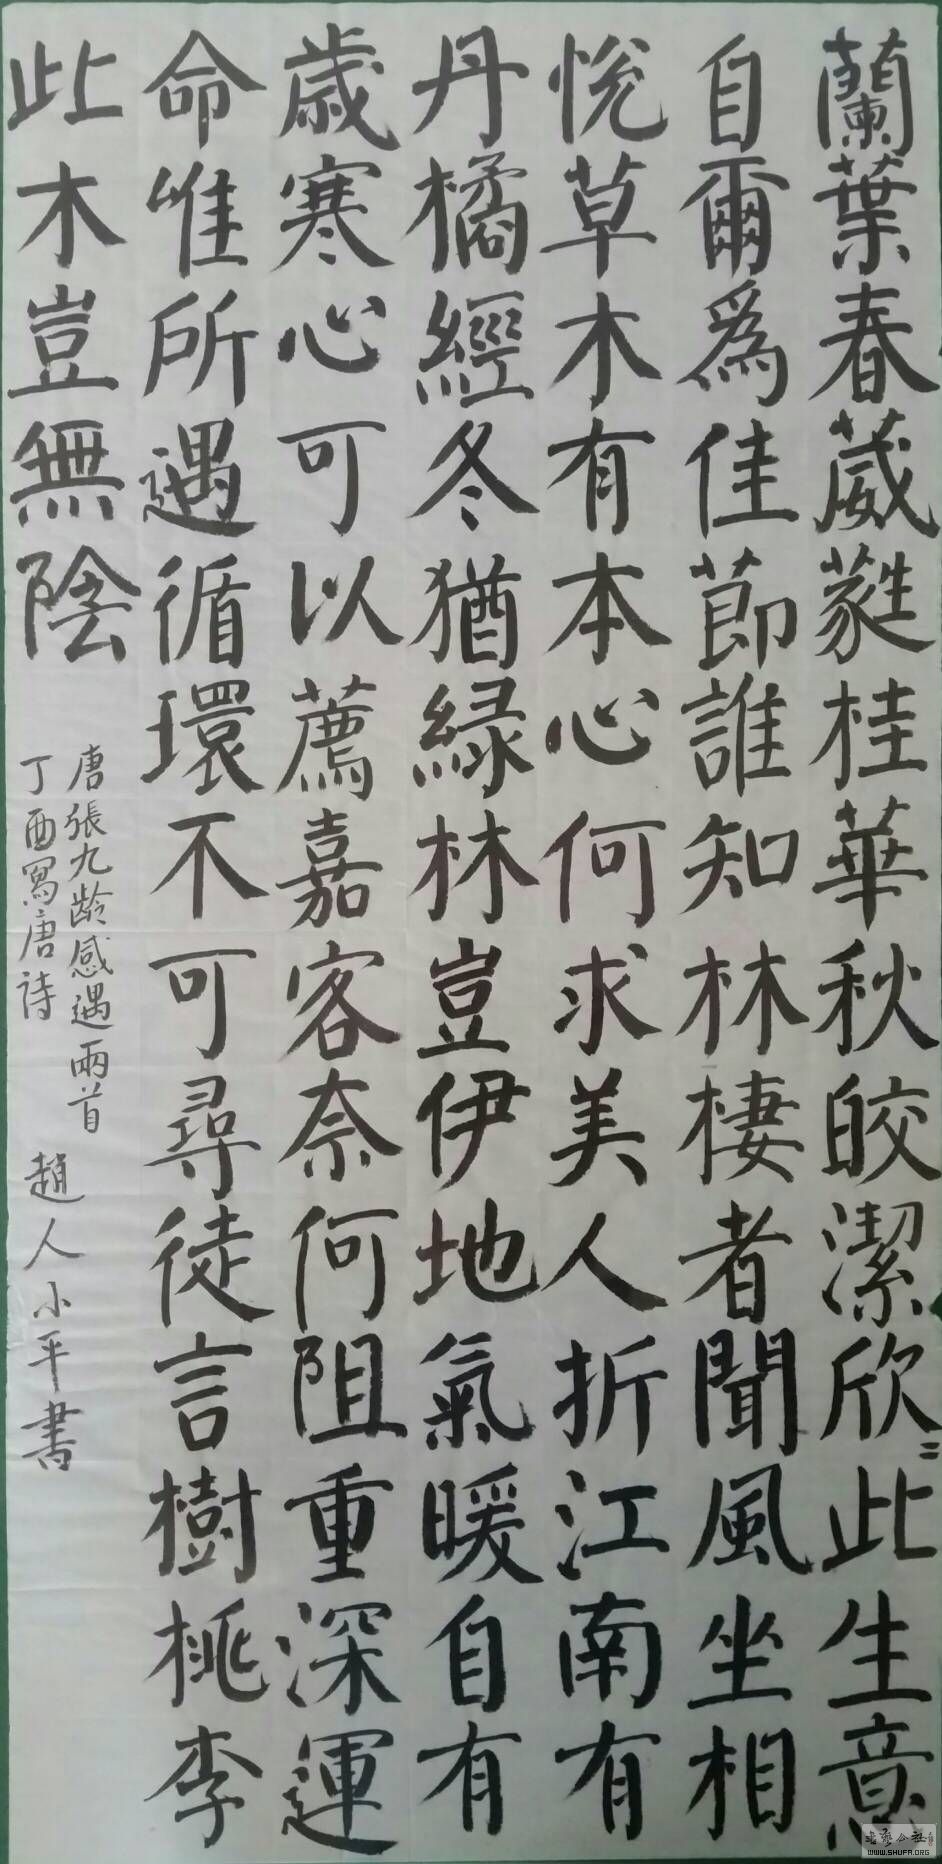 蘭葉春葳蕤桂華秋皎潔欣〻此生意
自爾爲佳節誰知林棲者聞風坐相
悅草木有本心何求美人折江南有
丹橘經冬猶綠林豈伊地氣暖自有
歲寒心可以薦嘉客奈何阻重深運
命唯所遇循環不可尋徒言樹桃李
此木豈無陰
唐張九龄感遇兩首
丁酉寫唐诗
趙人小平書
WWW.SHUFA.ORG